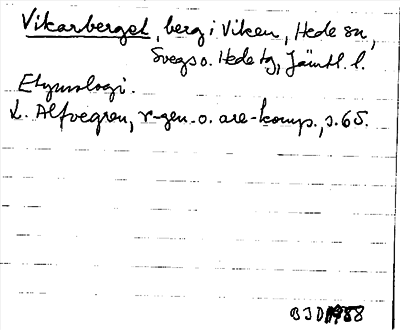 Vikarberget, berg i Viken, Hede sn,
Svegs o. Hede tg, Jämtl. l.
Etymologi.
L. Alfvegren, r-gen. o. are-komp., s. 65.
BJD 1988